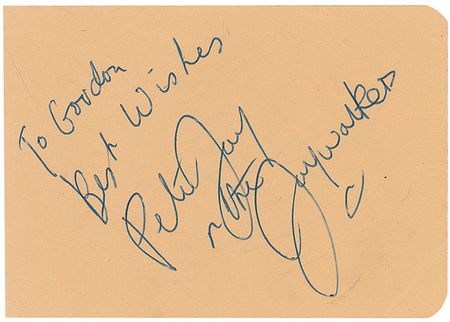 To Gordon
Best Wishes
Peter Jay
n the Jaywalkers